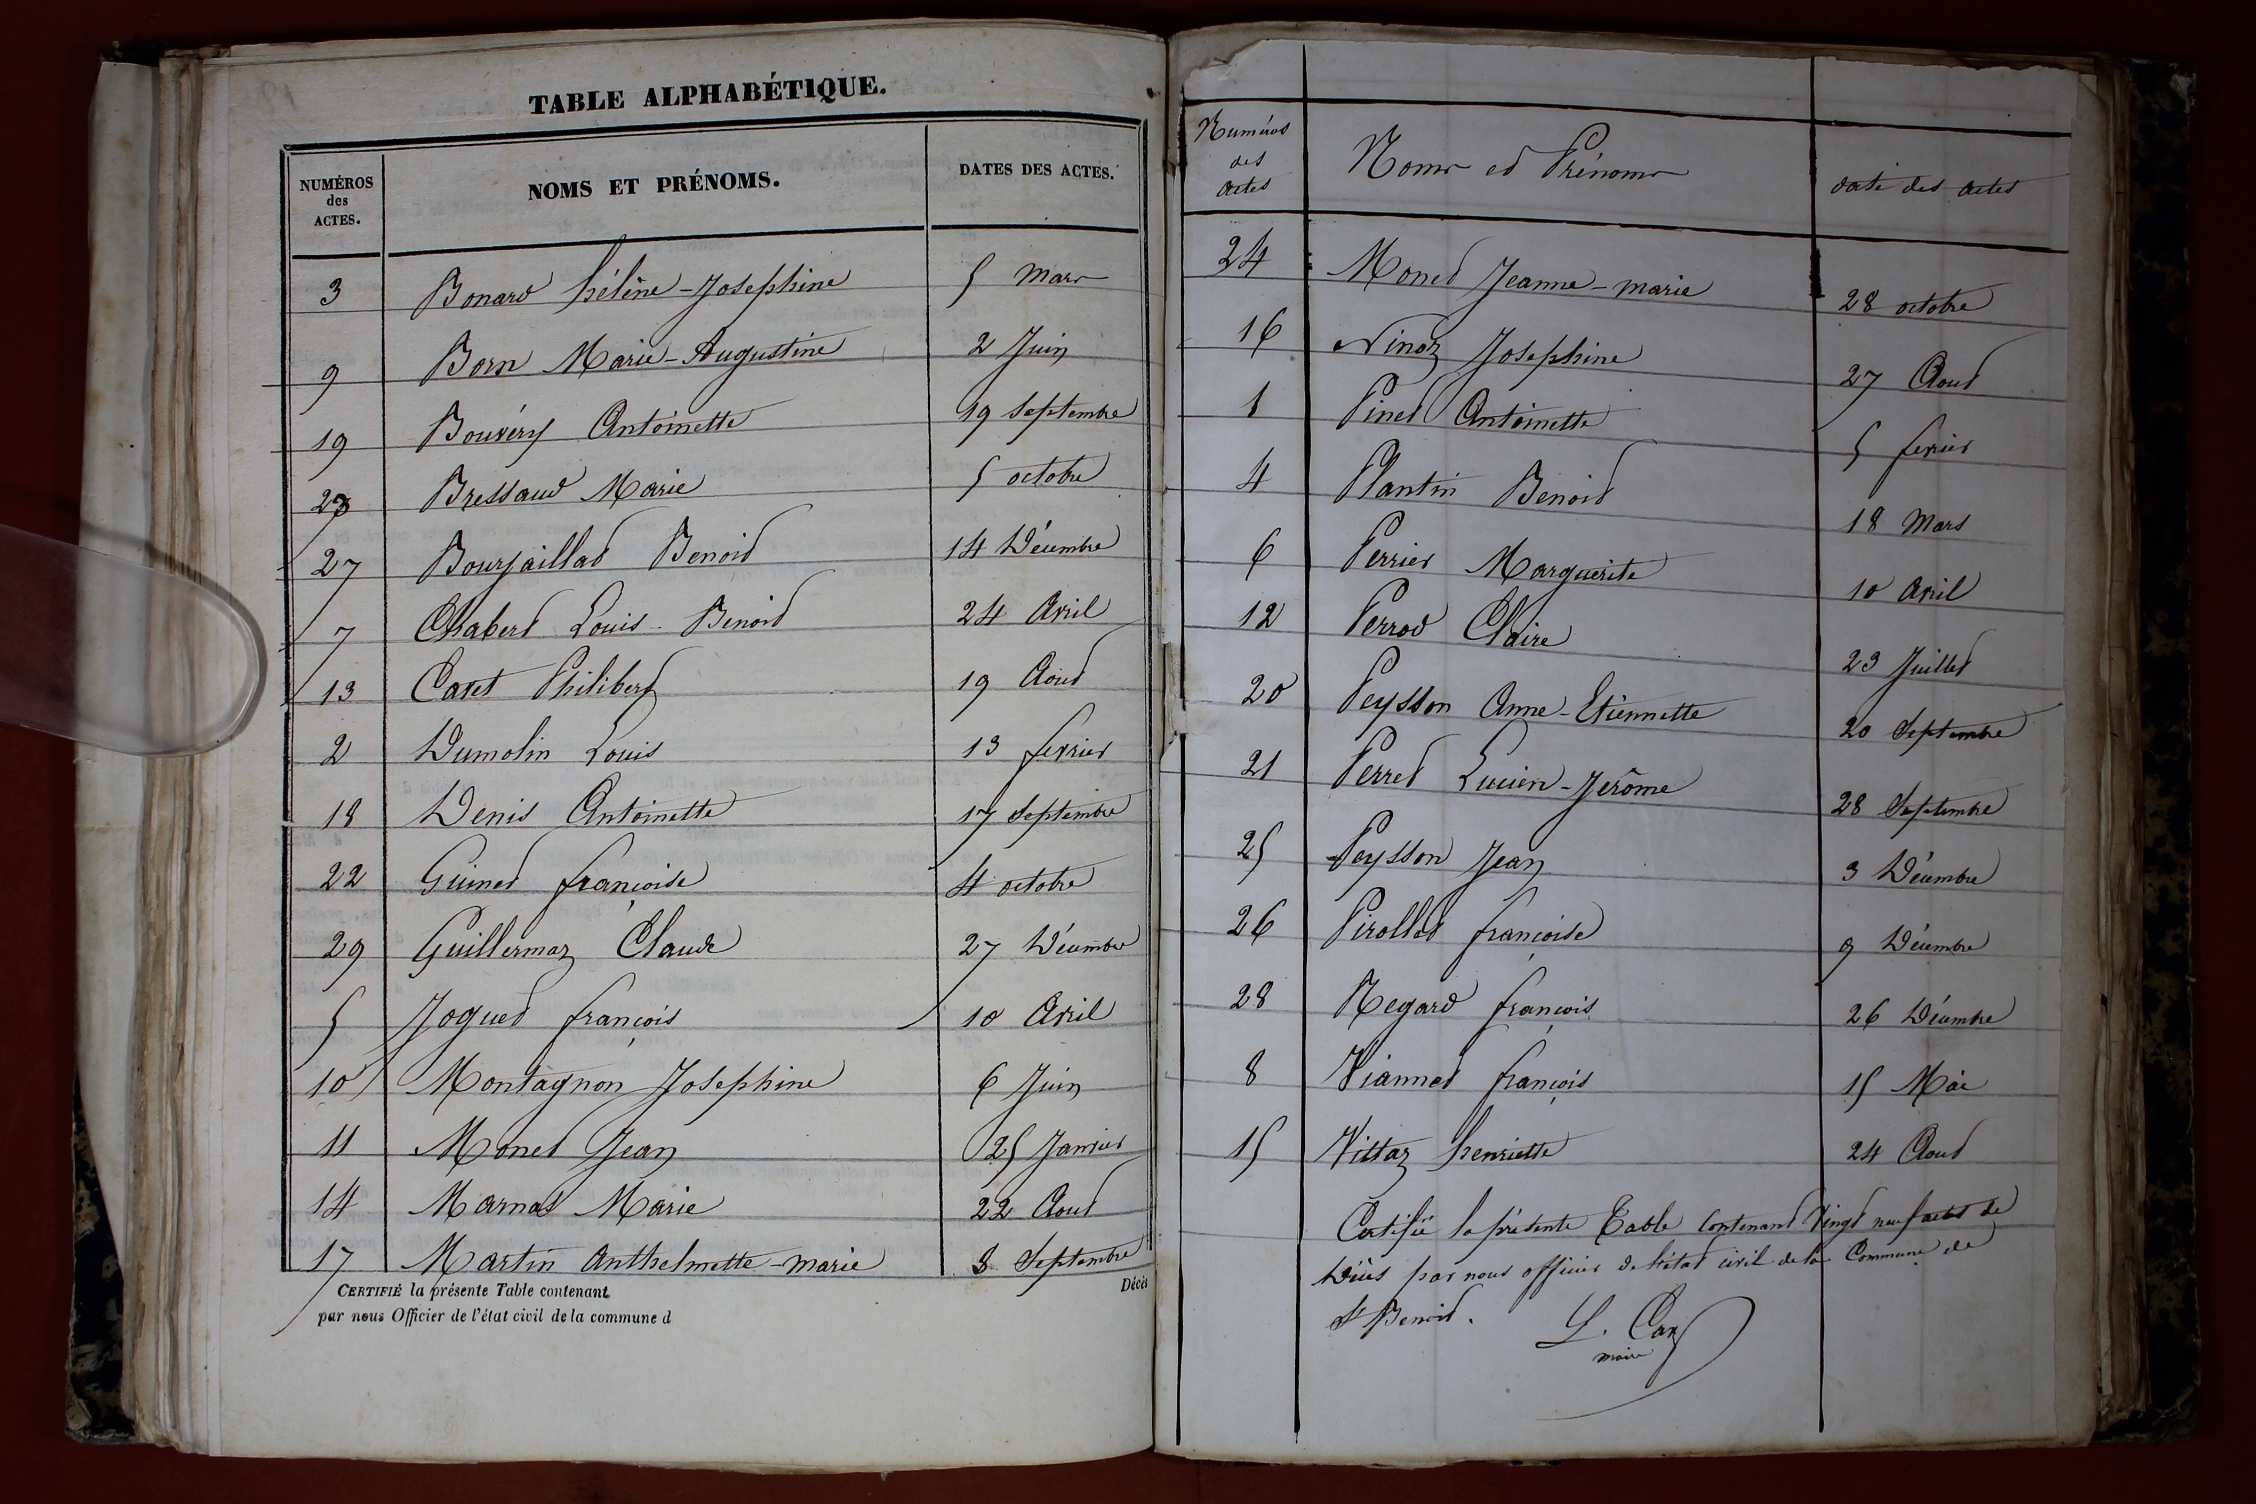 TABLE ALPHABÉTIQUE.
NUMÉROS des ACTES. NOMS ET PRÉNOMS. DATES DES ACTES.
3 Bonard hélène-Josephine 5 mars
9 Born Marie-Augustine 2 Juin
19 Bouvéry Antoinette 19 septembre
23 Bressaud Marie 5 octobre
27 Bourjaillat Benoit 14 Décembre
7 Chabert Louis-Benoit 24 Avril
13 Caret Philibert 19 Aout
2 Dumolin Louis 13 fevrier
18 Denis Antoinette 17 septembre
22 Guinet françoise 4 octobre
29 Guillermaz Claude 27 Décembre
5 Joguet françois 10 Avril
10 Montagnon Josephine 6 Juin
11 Monet Jean 25 Janvier
14 Marnas Marie 22 Aout
17 Martin Anthelmette-marie 8 Septembre
CERTIFIÉ la présente Table contenant Décès
par nous Officier de l'état civil de la commune d
Numéros des actes Noms et Prénoms date des actes
24 Monet Jeanne-marie 28 octobre
16 Ninoz Josephine 27 Aout
1 Pinet Antoinette 5 fevrier
4 Plantin Benoit 18 Mars
6 Perrier Marguerite 10 Avril
12 Perrod Claire 23 Juillet
20 Peysson Anne-Etiennette 20 Septembre
21 Perret Lucien-Jerôme 28 Septembre
25 Peysson Jean 3 Décembre
26 Pirollet françoise 9 Décembre
28 Regard françois 26 Décembre
8 Viannet françois 15 Mai
15 Vittaz henriette 24 Aout
Certifié la présente Table contenant Vingt neuf actes de
Décès par nous officier de l'état civil de la Commune de
St Benoit.
L. Car
maire